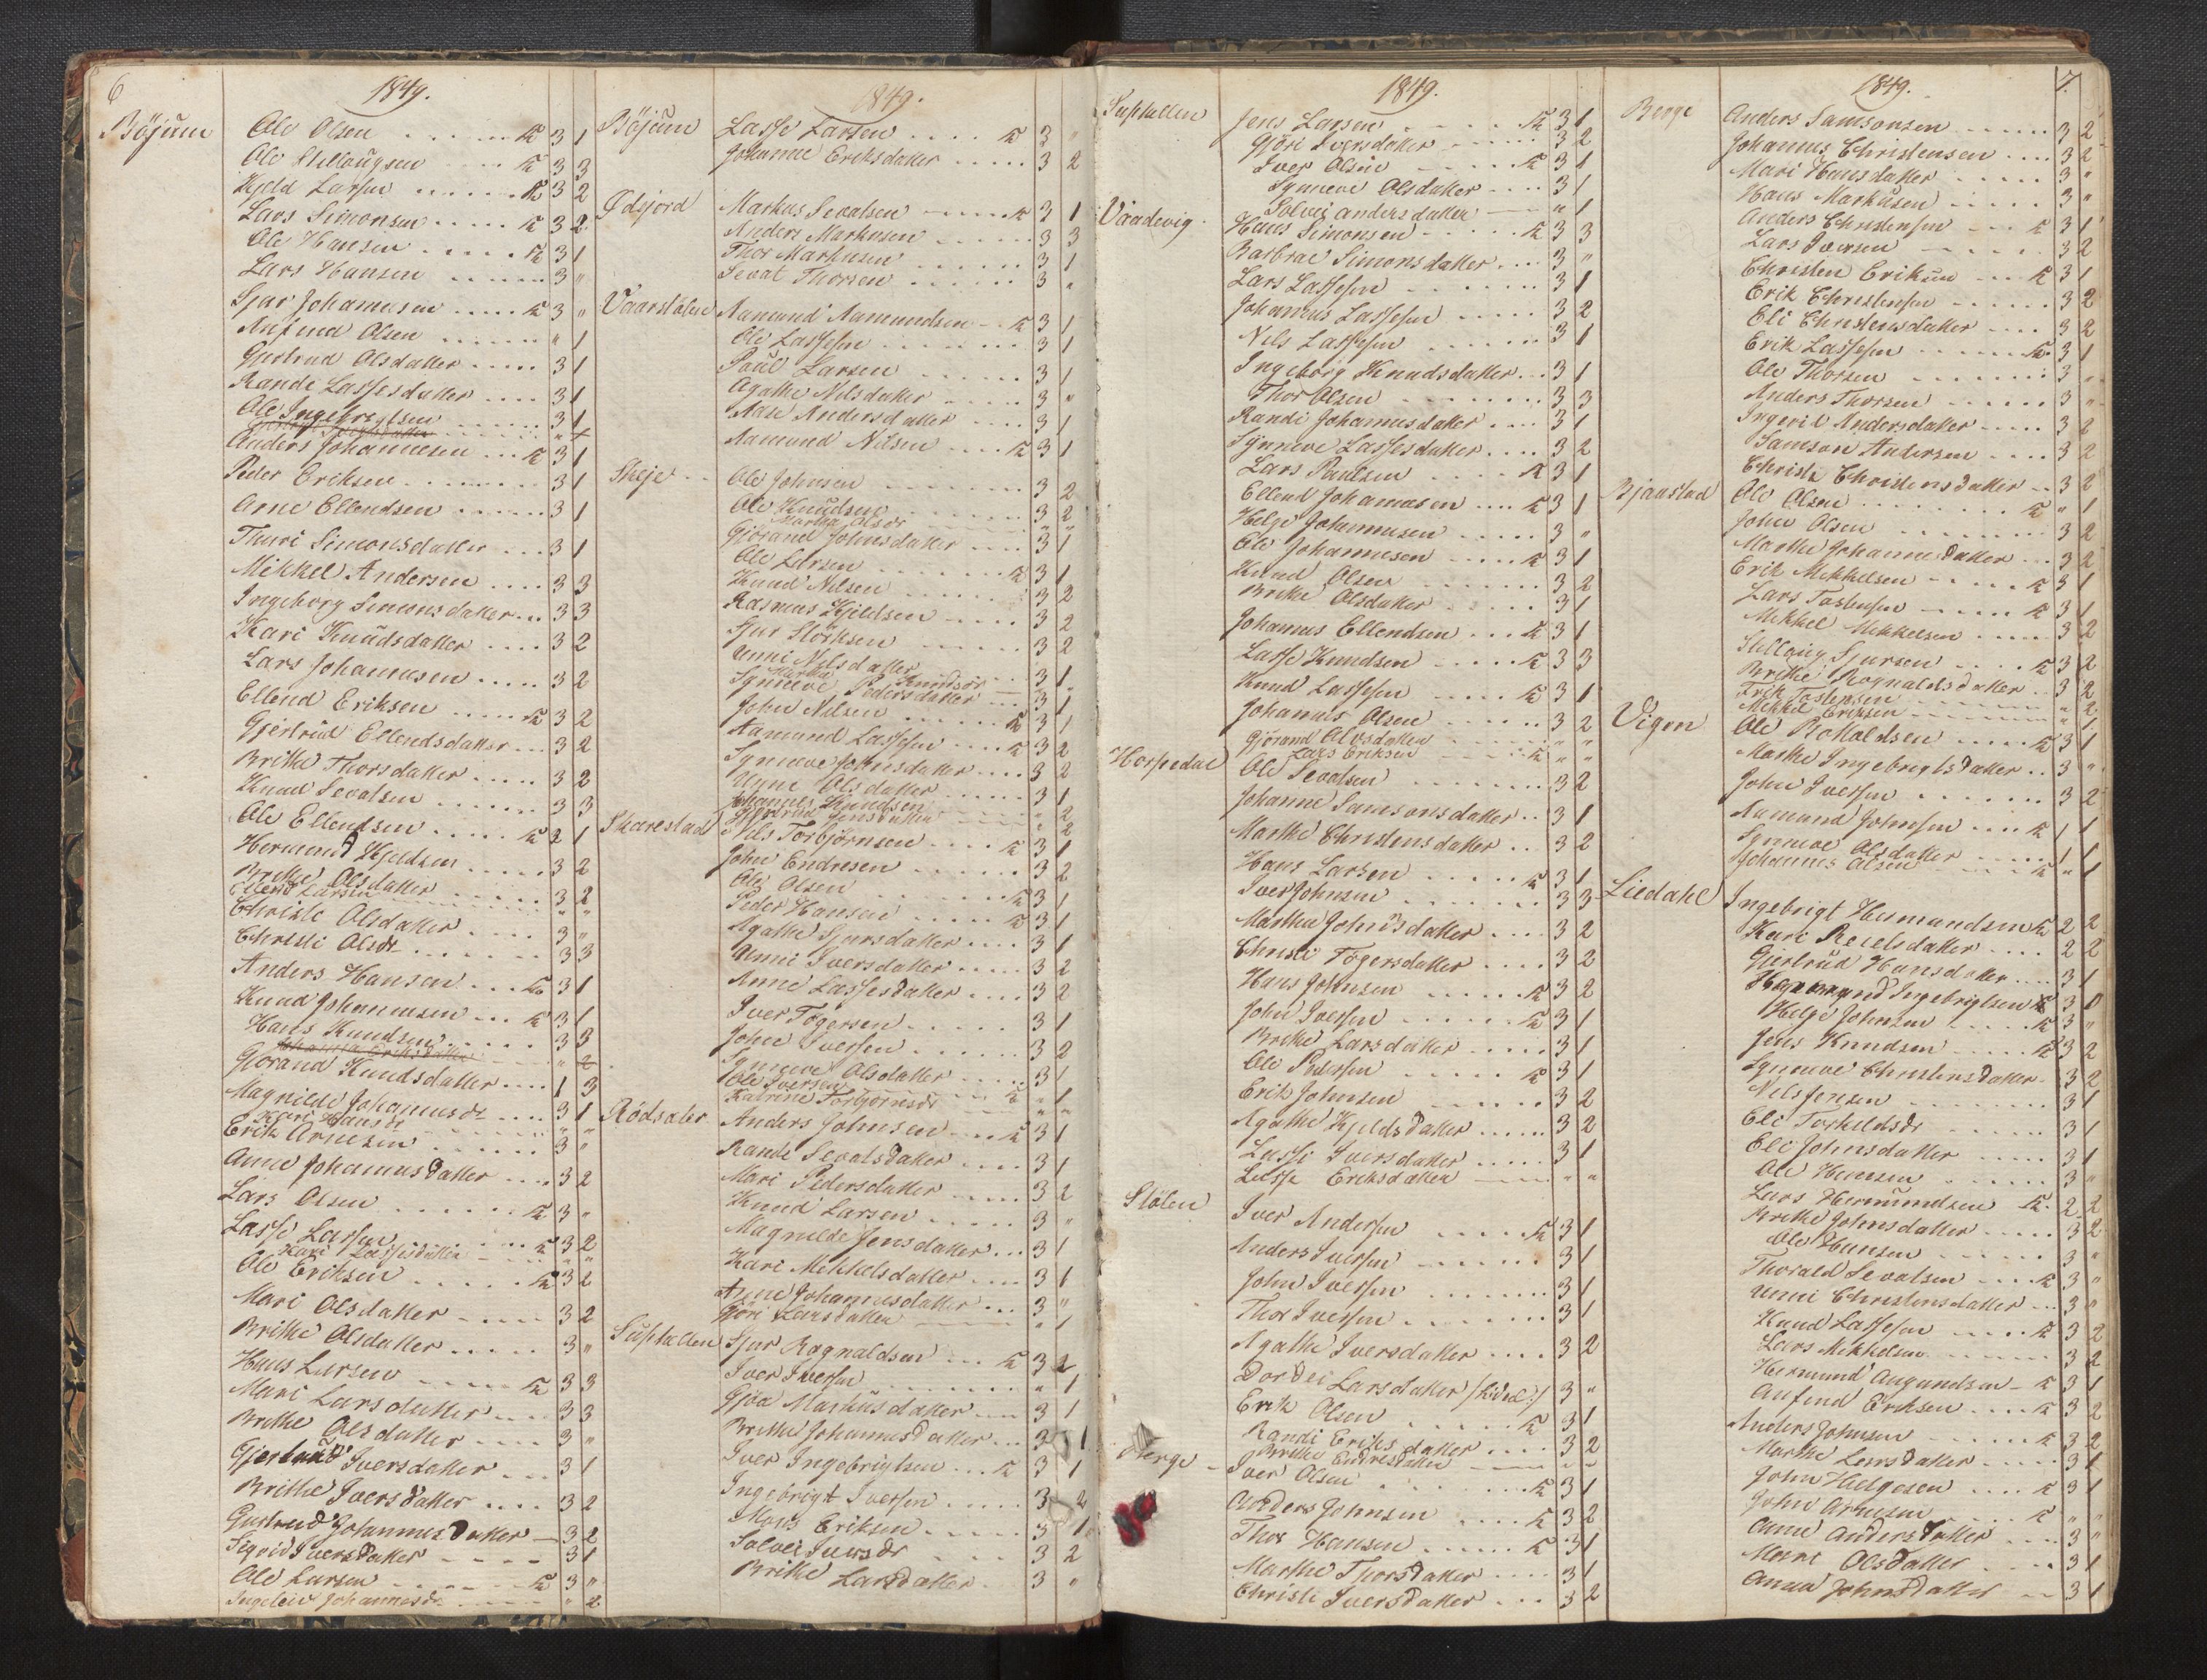 6
1849.
Böjum Ole Olsen ...... k 3 1
Ole Stillaugsen .... k 3 3
Kjeld Larsen ..... k 3 2
Lars Simonsen ..... k 3 2
Ole Hansen ..... k 3 1
Lars Hansen ...... 3 "
Sjur Johannesen ..... k 3 "
Anfind Olsen ...... " 1
Gjertrud Olsdatter ..... 3 1
Rande Lassesdatter .... 3 1
Ole Ingebrigtsen ...... 3 1
Anders Johannesen ... k 3 1
Peder Eriksen ........ 3 1
Arne Ellendsen ...... 3 1
Thuri Simonsdatter ... 3 1
Mikkel Andersen .... 3 3
Ingeborg Simonsdatter ... 3 3
Kari Knudsdatter .... 3 2
Lars Johannesen ..... 3 2
Ellend Eriksen ..... k 3 2
Gjertrud Ellendsdatter ... 3 2
Brithe Thorsdatter ..... 3 2
Knud Sevalsen ....... 3 3
Ole Ellendsen ..... k 2 1
Hermund Kjeldsen ..... 3 2
Brithe Olsdatter ...... 3 2
Ellend Larsen " "
Christe Olsdatter .... 3 "
Christi Olsdr ....... 3 3
Anders Hansen ... k 3 1
Knud Johannesen ... k 3 1
Hans Knudsen ..... 3 3
Johanna Eriksdatter " 2
Gjorand Knudsdatter .... 1 3
Magnilde Johannesdr .... 3 1
Kari Hansdr " "
Erik Arnesen ...... 3 "
Anna Johannesdatter .... 3 2
Lars Olsen ...... k 3 "
Lasse Larsen ..... k 3 2
Kari Lassesdatter " "
Ole Eriksen ..... k 3 2
Mari Olsdatter ..... 3 2
Brithe Olsdatter ..... 3 "
Hans Larsen ..... k 3 3
Mari Larsdatter .... 3 3
Brithe Olsdatter .... 3 "
Gjertrud Iversdatter ... 3 1
Brithe Iversdatter .... 3 2
Gjertrud Johannesdatter 3 2
Sigrid Iversdatter .... 3 1
Ole Larsen ...... k 3 "
Ingeleiv Johannesdr " 2
1849.
Böjum Lasse Larsen .... k 3 "
Johanne Eriksdatter ..... 3 2
Ødsjord Markus Sevalsen .... k 3 1
Anders Markusen ...... 3 3
Thor Markusen ...... 3 1
Sevat Thorsen ...... 3 "
Vaarstölen Aamund Aamundsen .. k 3 1
Ole Lassesen ....... 3 1
Paul Larsen ...... 3 1
Agathe Nilsdatter ..... 3 "
Aase Andersdatter .... 3 1
Aamund Nilsen .... k 3 1
Skeje .. Ole Johnsen ....... 3 2
Ole Knudsen ....... 3 2
Martha Olsdr " "
Gjörand Johnsdatter .... 3 1
Ole Larsen ....... k 3 1
Knud Nilsen ...... 3 2
Rasmus Kjeldsen ..... 3 2
Sjur Störksen ...... 3 2
Unni Nilsdatter ..... 3 1
Martha Knudsdr "
Synneve Pedersdatter ... 3 1
John Nilsen ...... k 3 1
Aamund Lassesen .... k 3 2
Synneve Johnsdatter .... 3 2
Unne Olsdatter ...... 3 1
Johannes Knudsen " 2
Gjertrud Jensdatter " 2
Skarestad Nils Torbjörnsen .... k 3 1
John Endresen ...... 3 2
Ole Olsen ...... k 3 1
Peder Hansen ..... k 3 1
Agathe Sjursdatter .... 3 1
Unni Iversdatter ..... 3 2
Anne Lassesdatter .... 3 2
Iver Tögersen ..... 3 1
John Iversen ...... 3 2
Synneve Olsdatter ..... 3 1
Ole Iversen .... k " 1
Katrine Torbjörnsdr " "
Rödsæter Anders Johnsen .... k 3 1
Rande Sevalsdatter .... 3 1
Mari Pedersdatter ..... 3 2
Knud Larsen ..... 3 "
Magnilde Jensdatter ... 3 1
Kari Mikkelsdatter .... 3 1
Anne Johannesdatter ... 3 "
Gjöri Larsdatter " 1
Suphellen Sjur Ragnaldsen ... k 3 2
Iver Iversen ....... " 1
Gjöa Markusdatter .... 3 1
Brithe Johannesdatter ... 3 1
Iver Ingebrigtsen ... k 3 1
Ingebrigt Iversen ..... 3 2
Mons Eriksen ..... 3 1
Solvei Iversdr .... 3 2
Brithe Larsdatter . 3 "
1849.
Suphellen Jens Larsen ...... k 3 1
Gjöri Iversdatter ...... 3 2
Iver Olsen ..... k 3 1
Synneve Olsdatter .... 3 1
Solvei Andersdatter " 1
Vaadevig . Hans Simonsen ..... k 3 3
Barbrae Simonsdatter .... 3 "
Lars Lassesen ....... 3 1
Johannes Lassesen ..... 3 2
Nils Lassesen ...... 3 1
Ingeborg Knudsdatter ... 3 1
Thor Olsen ........ 3 3
Randi Johannesdatter .... 3 1
Synneve Lassesdatter .... 3 2
Lars Paulsen .... k 3 1
Ellend Johannesen .... k 3 1
Helge Johannesen ..... 3 "
Ole Johannesen .... k 3 1
Knud Olsen ....... 3 2
Brithe Olsdatter ...... 3 1
Johannes Ellendsen ... k 3 1
Lasse Knudsen ..... k 3 3
Knud Lassesen ..... k 3 1
Johannes Olsen ...... 3 2
Gjörand Olsdatter " "
Lars Eriksen k " "
Horpedal Ole Sevalsen ........ 3 2
Johanne Samsonsdatter .. 3 1
Marthe Christensdatter .. 3 2
Hans Larsen ..... k 3 1
Iver Johnsen ....... 3 3
Martha Johnsdatter .... 3 2
Christi Tögersdatter .... 3 2
Hans Johnsen ...... k 3 2
John Iversen ...... k 3 1
Brithe Larsdatter ..... 3 1
Ole Pedersen ..... k 3 1
Erik Johnsen ...... 3 2
Agathe Kjeldsdatter ...... 3 2
Lasse Iversdatter ..... 3 1
Lasse Eriksdatter " "
Stölen Iver Andersen ..... k 3 1
Anders Iversen ...... 3 1
John Iversen ........ 3 1
Thor Iversen ....... 3 1
Agathe Iversdatter .... 3 2
Dordei Larsdatter 3 "
Erik Olsen ...... k 3 1
Randi Eriksdatter .... 3 2
Brithe Endresdatter " "
Berge Iver Olsen ....... k 3 1
Anders Johnsen .... k 3 2
Thor Hansen ...... k 3 1
Marthe Thorsdatter .... 3 1
Christi Iversdatter ... 3 2
1849.
7.
Berge Anders Samsonsen ...... 3 2
Johannes Christensen .... 3 2
Mari Hansdatter ..... 3 "
Hans Markusen ..... 3 "
Anders Christensen ... k 3 1
Lars Iversen ...... 3 2
Christen Eriksen ... k 3 1
Erik Christensen ...... 3 2
Eli Christensdatter .... 3 2
Erik Lassesen ...... k 3 1
Ole Thorsen ....... 3 "
Anders Thorsen ...... 3 "
Ingerid Andersdatter ..... 3 2
Samson Andersen .... 3 2
Christi Christensdatter .. 3 2
Bjaastad Ole Olsen ........ k " 1
John Olsen ........ 3 2
Marthe Johannesdatter ... 3 2
Erik Mikkelsen ..... k 3 1
Lars Tostensen ..... k 3 1
Mikkel Mikkelsen ..... 3 2
Stillaug Sjursen .... k 3 2
Brithe Rognaldsdatter .. 3 2
Erik Tostensen " 2
Mikkel Eriksen " 1
Vigen Ole Rohaldsen ..... k 3 1
Marthe Ingebrigtsdatter .. 3 "
John Iversen ....... 3 2
Aamund Johnsen .... k 1 1
Synneve Olsdatter ..... 1 1
Johannes Olsen k " 1
Liedahl Ingebrigt Hermundsen k 2 2
Kari Reielsdatter .... 2 2
Gjertrud Hansdatter .... 3 1
Hermund Ingebrigtsen k 3 0
Helge Johnsen ..... k 3 "
Jens Knudsen ..... k 3 2
Synneve Christensdatter . 3 2
Nils Jensen ....... 3 1
Eli Torkildsdr ...... 3 1
Eli Johnsdatter ..... 3 1
Ole Hansen ...... 3 "
Lars Hermundsen k. 2 2
Brithe Johnsdatter ..... 3 2
Ole Hansen ...... 3 "
Thorald Sevalsen .... k 3 "
Unni Christensdatter ... 3 "
Knud Lassesen ..... k 3 2
Lars Mikkelsen 3 2
Hermund Aagundsen - k 3 1
Anfind Eriksen .... k 3 2
Anders Johnsen ...... k 3 2
Marthe Larsdatter ..... 3 1
John Helgesen .... k 3 1
John Arnesen ..... k " "
Anne Andersdatter .... 3 "
Marte Olsdatter .... 3 1
Anna Johnsdatter .. 3 1